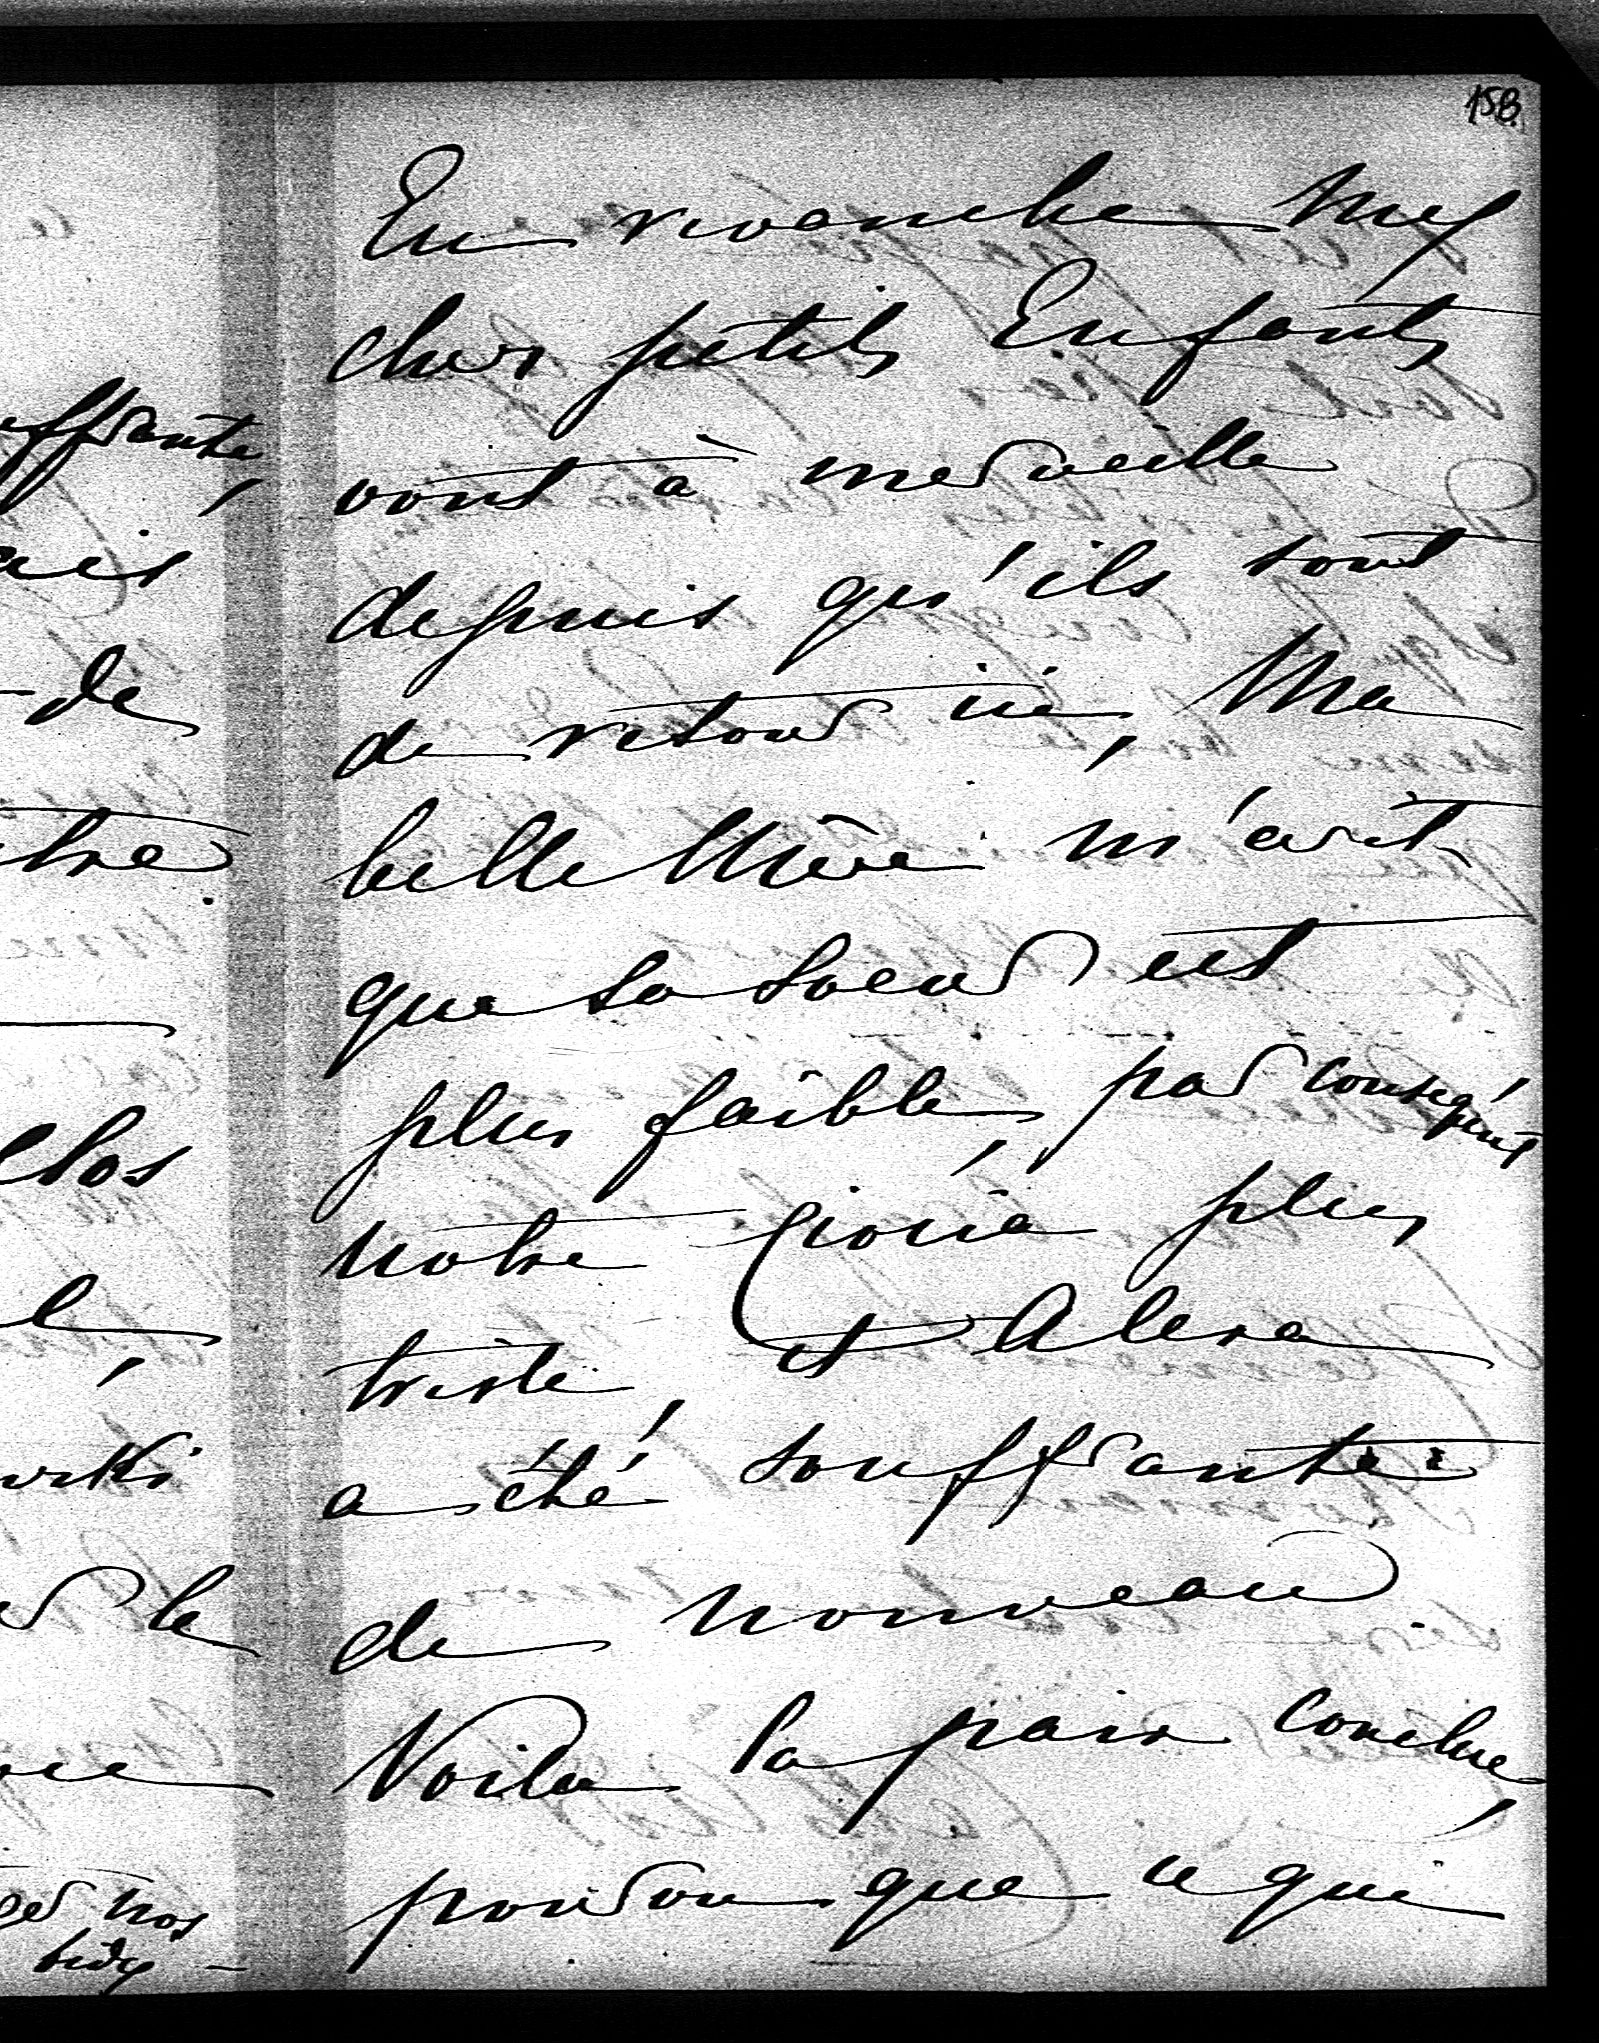 15B.
En revanche mes
chers petits Enfants
vont à merveille
depuis qu'ils sont
de retour ici, Ma
belle Mère m'écrit
que sa soeur est
plus faible, par conséquent
notre plus
triste, et Alexa
a été souffante
de nouveau.
Voila la paix conclue,
pourvu que ce qui
uffrante,
ais
de
tre
le
nos